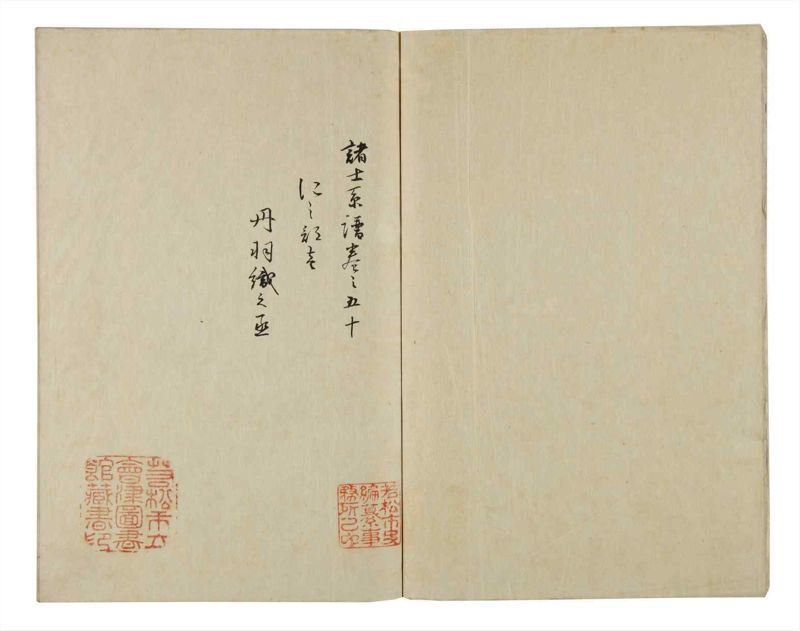 諸士系譜巻之五十
にノ部壱
丹羽織之丞
若松市史
編纂事
務所之印
若松市立
會津圖書
館蔵書印